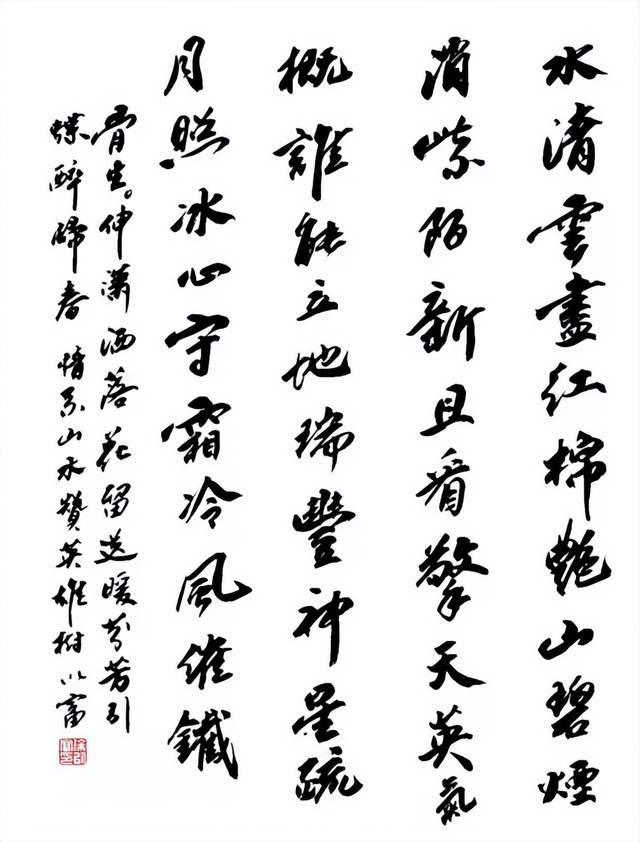 水清雲盡紅棉艷山碧煙
消紫陌新且看擎天英氣
概誰能立地瑞豐神星疏
月照冰心守霜冷風催鐵
骨生仲瀟洒落花留送暖芬芳引
蝶醉歸春情系山水贊英雄樹以富